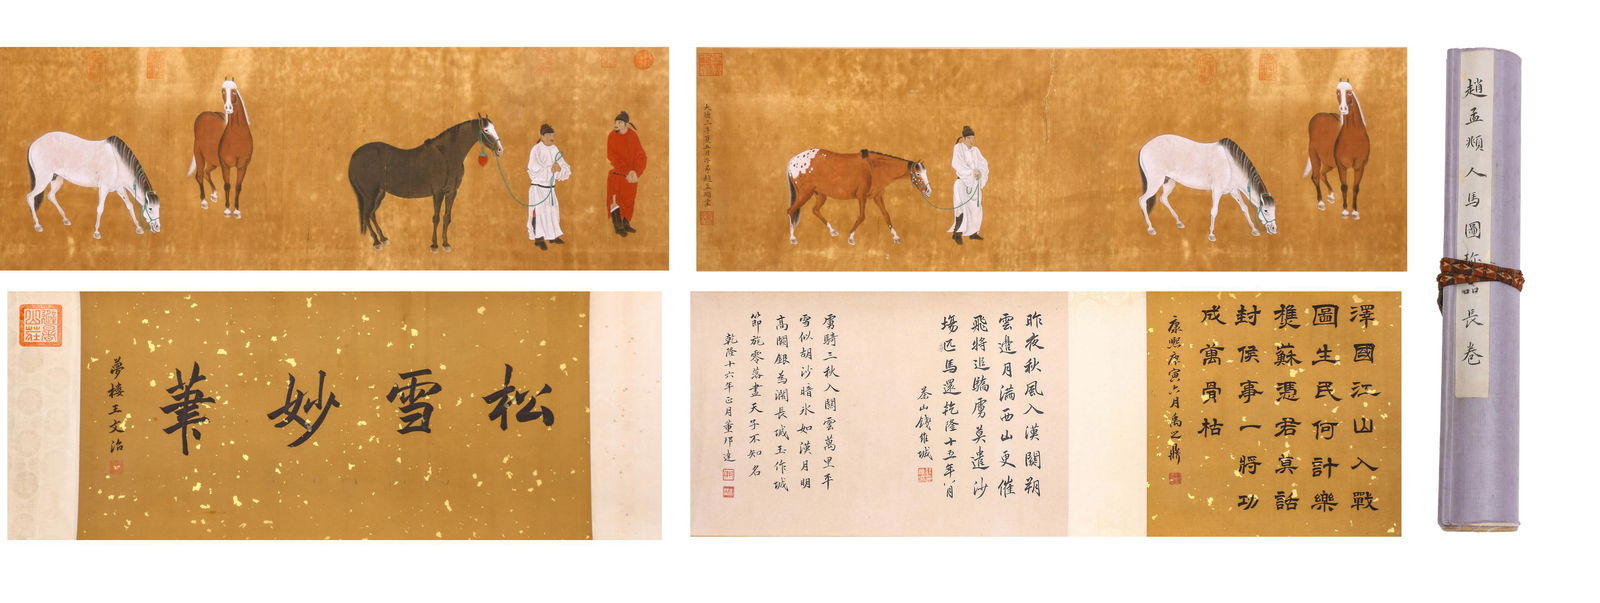 趙孟頫人馬圖珍品長卷
大德三年夏五月
松雪妙筆
夢樓王文治
避暑山莊
澤國江山入戰
圖生民何計樂
樵蘇憑君莫話
封侯事一將功
成萬骨枯
康熙庚寅六月禹之鼎
昨夜秋風入漢關朔
雲邊月滿西山更催
飛將追驕虜莫遣沙
場匹馬還乾隆十五年八月
茶山錢維城
虜騎三秋入關雲萬里平
雪似胡沙暗冰如漢月明
高闕銀為闕長城玉作城
節旄零落盡天子不知名
乾隆十六年正月董邦達